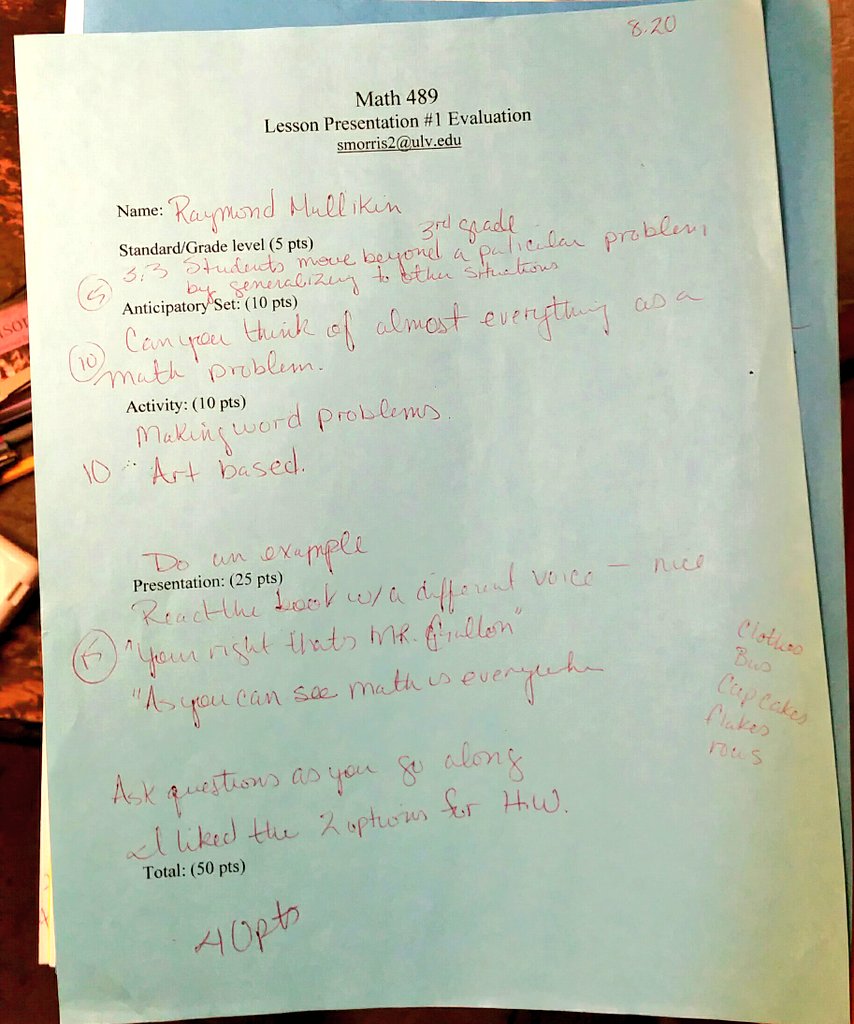 8.20
Math 489
Lesson Presentation #1 Evaluation
smorris2@ulv.edu
Name: Raymond Mullikin
3rd grade
Standard/Grade level (5 pts)
3.3 Students move beyond a paticular problem
by generalizing to other situations
5
Anticipatory Set: (10 pts)
Can you think of almost everything as a
10
math problem.
Activity: (10 pts)
Making word problems.
10 Art based.
Do an example
Presentation: (25 pts)
Read the book w/a different voice - nice
"Your right thats MR.
"As you can see math is everywhe
Clothes
Bus
Cupcakes
flakes
rows
Ask questions as you go along
I liked the 2 options for H.W.
Total: (50 pts)
40pts